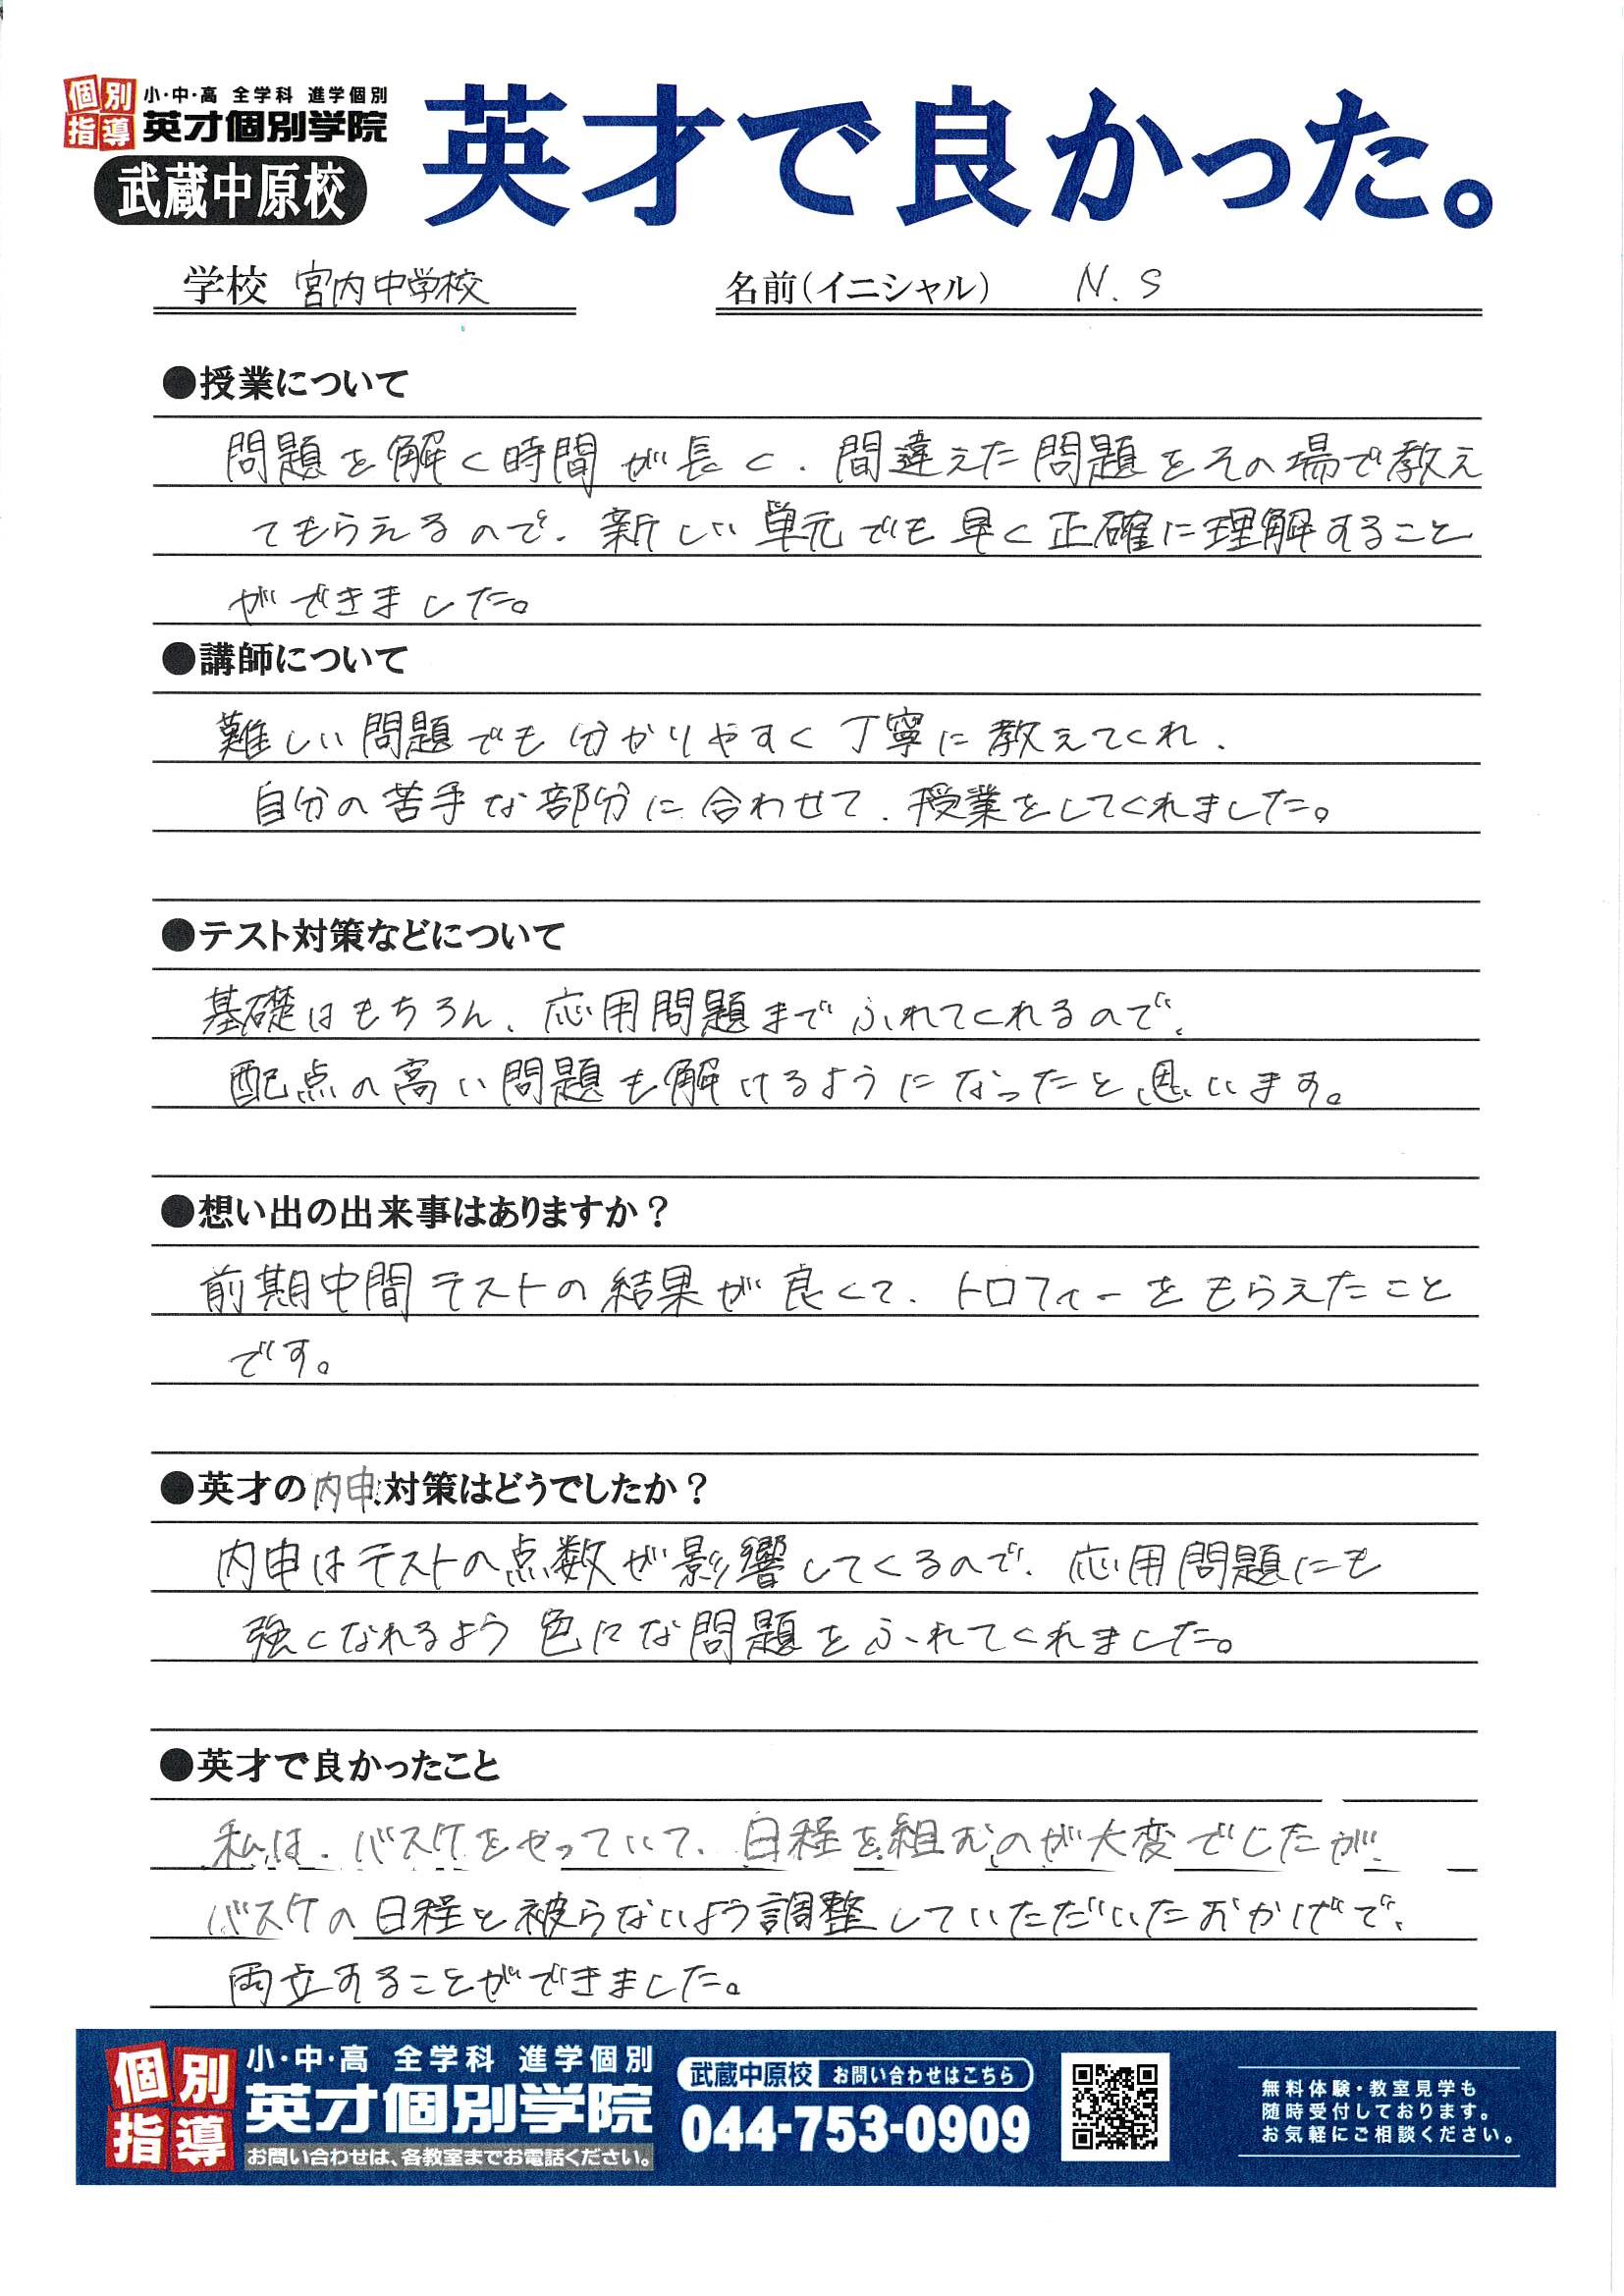 個別指導
小・中・高 全学科 進学個別
英才個別学院
武蔵中原校
英才で良かった。
学校 宮内中学校 名前(イニシャル) N.S
●授業について
問題を解く時間が長く、間違えた問題をその場で教え
てもらえるので、新しい単元でも早く正確に理解すること
ができました。
●講師について
難しい問題でも分かりやすく丁寧に教えてくれ、
自分の苦手な部分に合わせて、授業をしてくれました。
●テスト対策などについて
基礎はもちろん、応用問題までふれてくれるので、
配点の高い問題も解けるようになったと思います。
●想い出の出来事はありますか?
前期中間テストの結果が良くて、トロフィーをもらえたこと
です。
●英才の内申対策はどうでしたか?
内申はテストの点数が影響してくるので、応用問題にも
強くなれるよう色々な問題をふれてくれました。
●英才で良かったこと
私は、バスケをやっていて、日程を組むのが大変でしたが、
バスケの日程と被らないよう調整していただいたおかげで、
両立することができました。
個別指導
小・中・高 全学科 進学個別
英才個別学院
お問い合わせは、各教室までお電話ください。
武蔵中原校 お問い合わせはこちら
044-753-0909
無料体験・教室見学も
随時受付しております。
お気軽にご相談ください。